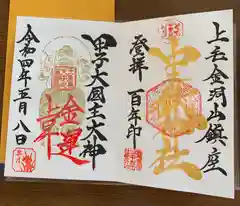 上毛金洞山鎮座
中嶽社
登拝
百年印
甲子大國主大神
金運
上昇
令和四年五月八日